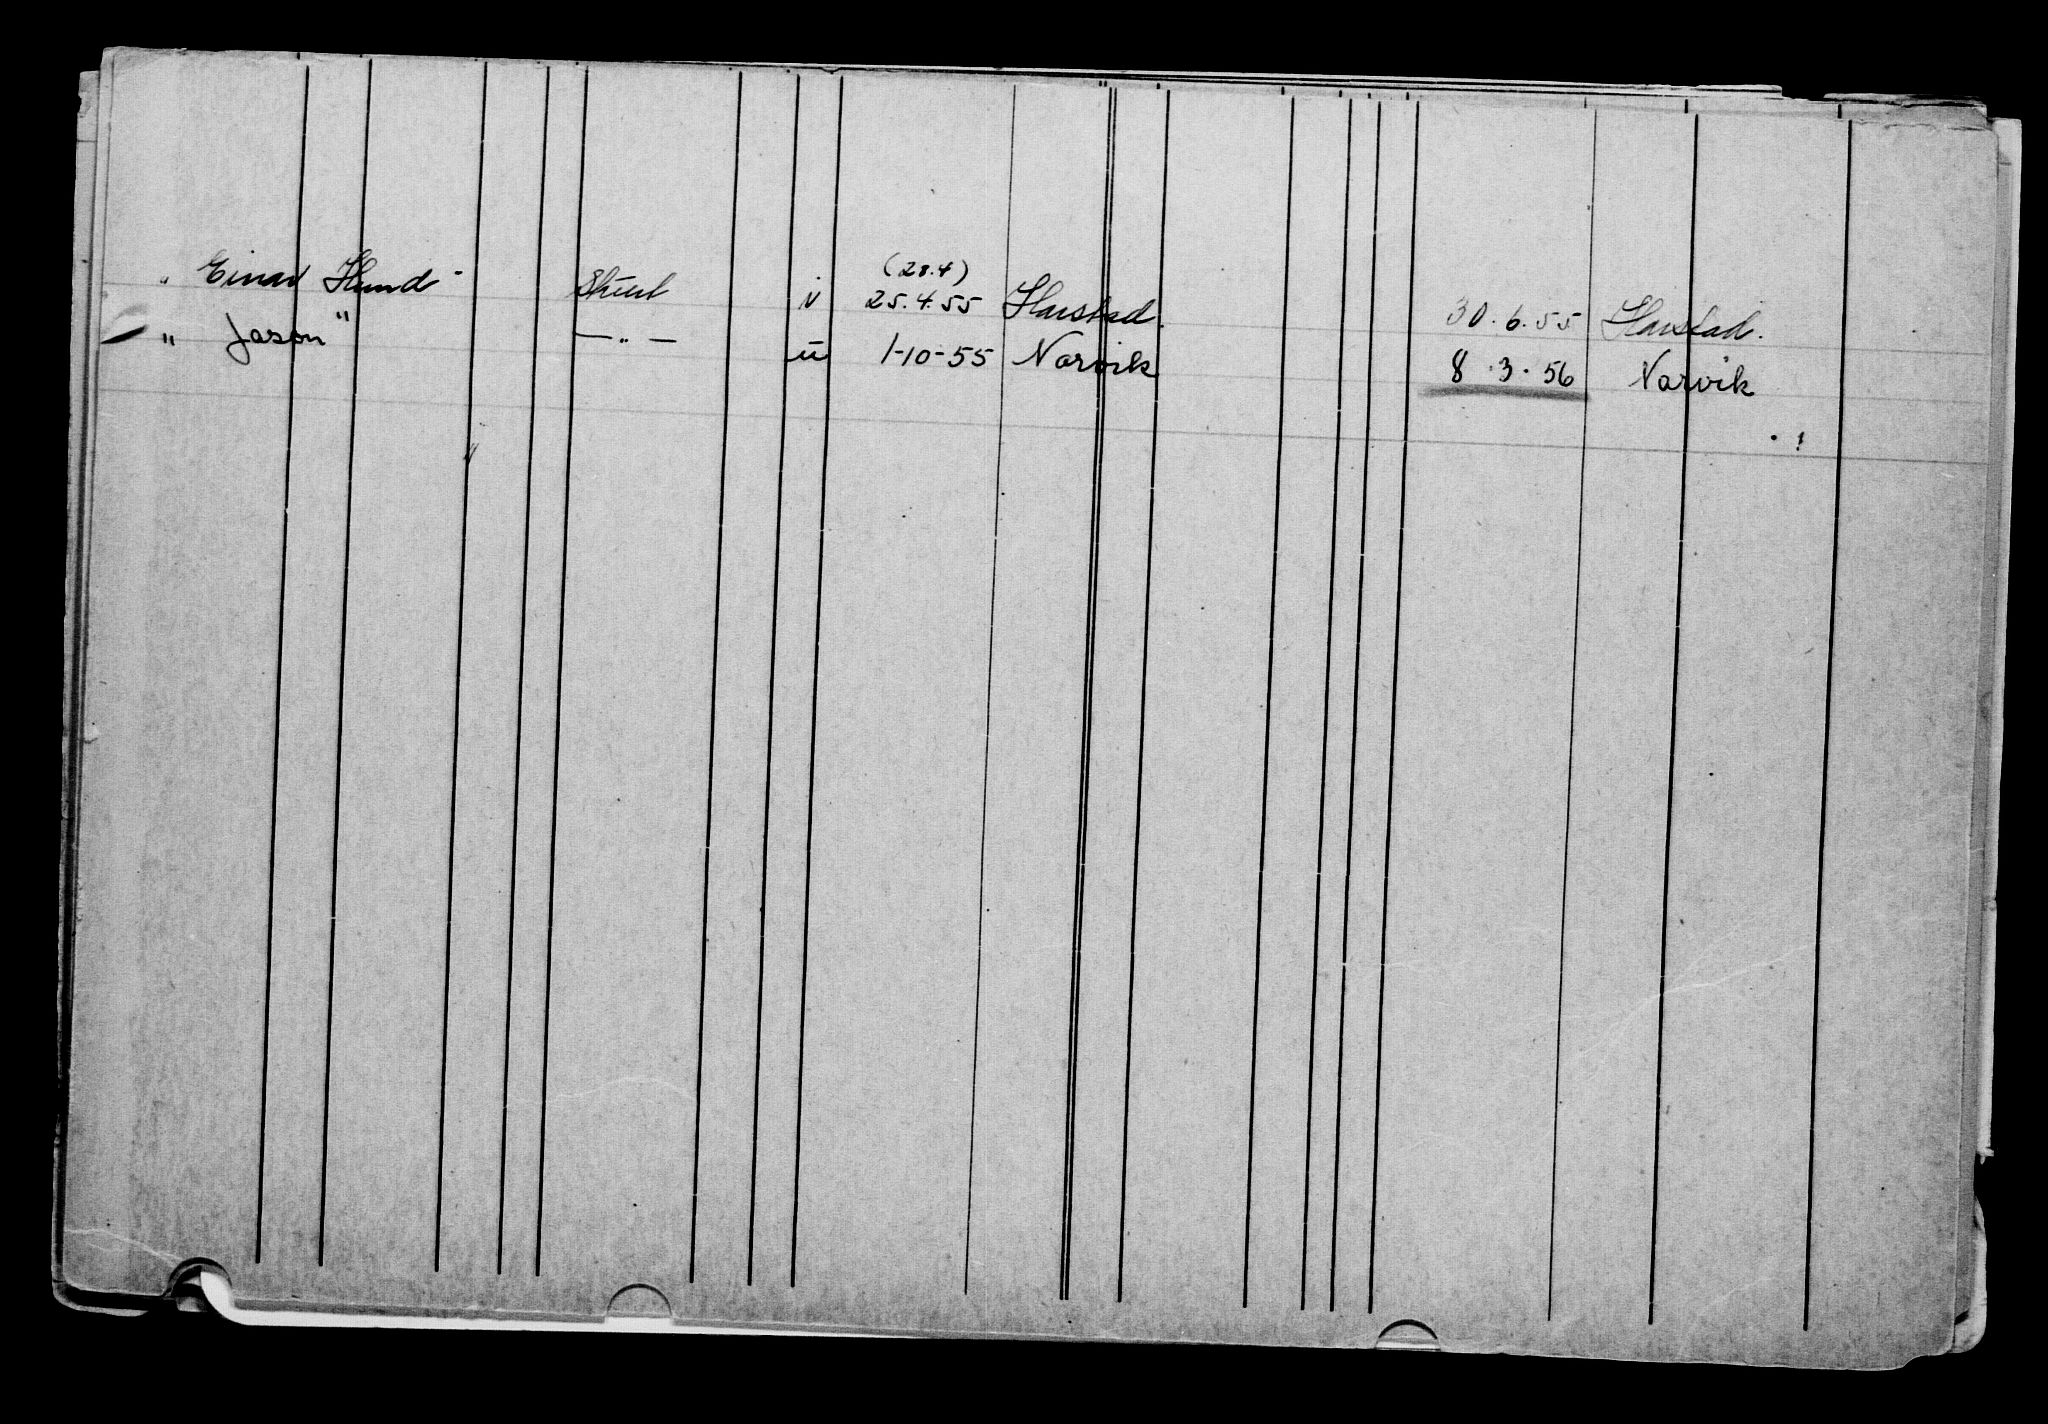 (28.4)
" Einar Hund " Stuert i 25.4.55 Harstad. 30.6.55 Harstad.
" Jason " — " — u 1-10-55 Narvik 8.3.56 Narvik